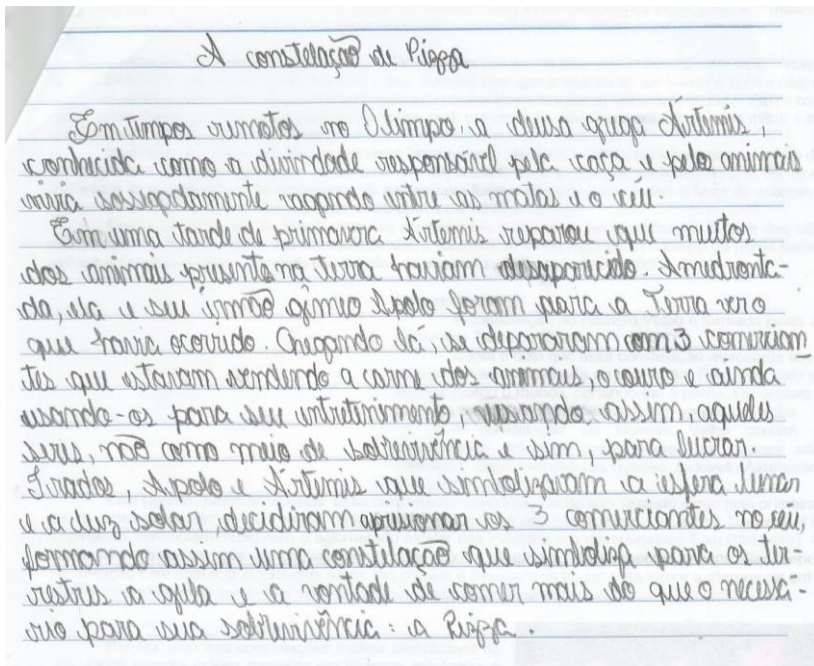 A constelação de Pizza
Em tempos remotos no Olimpo, a deusa grega Ártemis,
conhecida como a divindade responsável pela caça e pelo animais
vivia sossegadamente vagando entre as matas e o céu.
Em uma tarde de primavera Ártemis reparou que muitos
dos animais presente na terra haviam desaparecido. Amedronta-
da, ela e seu irmão gêmeo Apolo foram para a Terra ver o
que havia ocorrido. Chegando lá, se depararam com 3 comercian
tes que estavam vendendo a carne dos animais, o couro e ainda
usando-os para seu entretenimento, usando assim, aqueles
seres, não como meio de sobrevivência e sim, para lucrar.
Irados, Apolo e Ártemis que simbolizavam a esfera lunar
e a luz solar decidiram aprisionar os 3 comerciantes no céu,
formando assim uma constelação que simboliza para os ter-
restres a gula e a vontade de comer mais do que o necessá-
rio para sua sobrevivência: a Pizza.